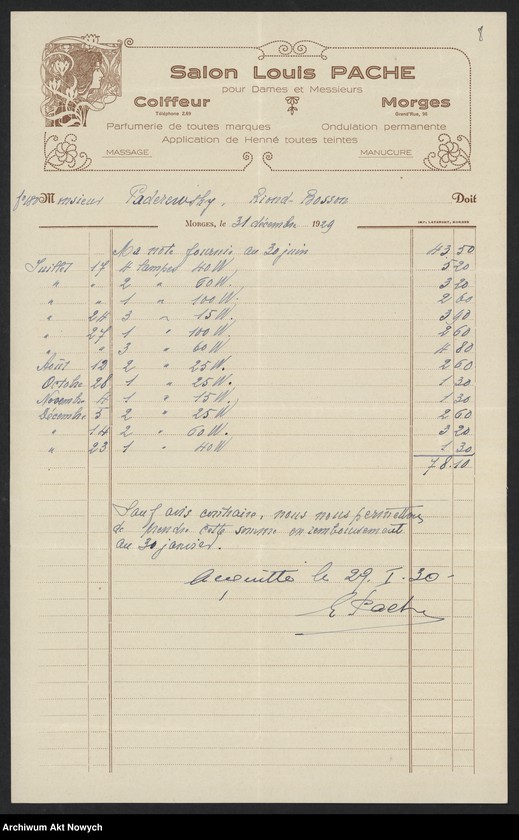 8
Salon Louis PACHE
pour Dames et Messieurs
Coiffeur Morges
Téléphone 2.59 Grand'Rue, 36
Parfumerie de toutes marques Ondulation permanente
Application de Henné toutes teintes
MASSAGE MANUCURE
Monsieur Paderewsky, Riond-Bosson Doit
MORGES, le 31 décembre 1929
IMP. LAVENEX, MORGES
Ma note fournie au 30 juin 43.50
Juillet 17 4 lampes 40 W. 5 20
" " 2 " 60 W. 3 20
" " 1 " 100 W. 2 60
" 24 3 " 15 W. 3 90
" 27 1 " 100 W. 2 60
" " 3 " 60 W 4 80
Août 12 2 " 25 W. 2 60
Octobre 28 1 " 25 W. 1 30
Novembre 4 1 " 15 W. 1 30
Décembre 5 2 " 25 W 2 60
" 14 2 " 60 W. 3 20
" 23 1 " 40 W 1 30
78.10
Sauf avis contraire, nous nous permettons
de prendre cette somme en remboursement
au 30 janvier.
Acquitté le 29. I. 30 -
Pache
Archiwum Akt Nowych